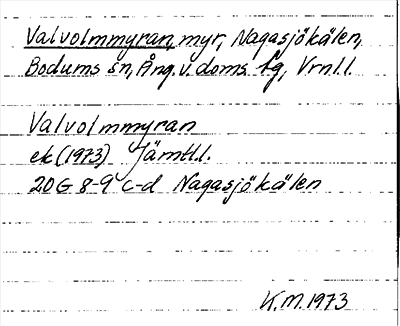 Valvolmmyran, myr, Nagasjökälen,
Bodums sn, Ång. v. doms lg, Vrnl.l.
Valvolmmyran
ek (1973) Jämtl.l.
20G 8-9 c-d Nagasjökälen
K.M. 1973